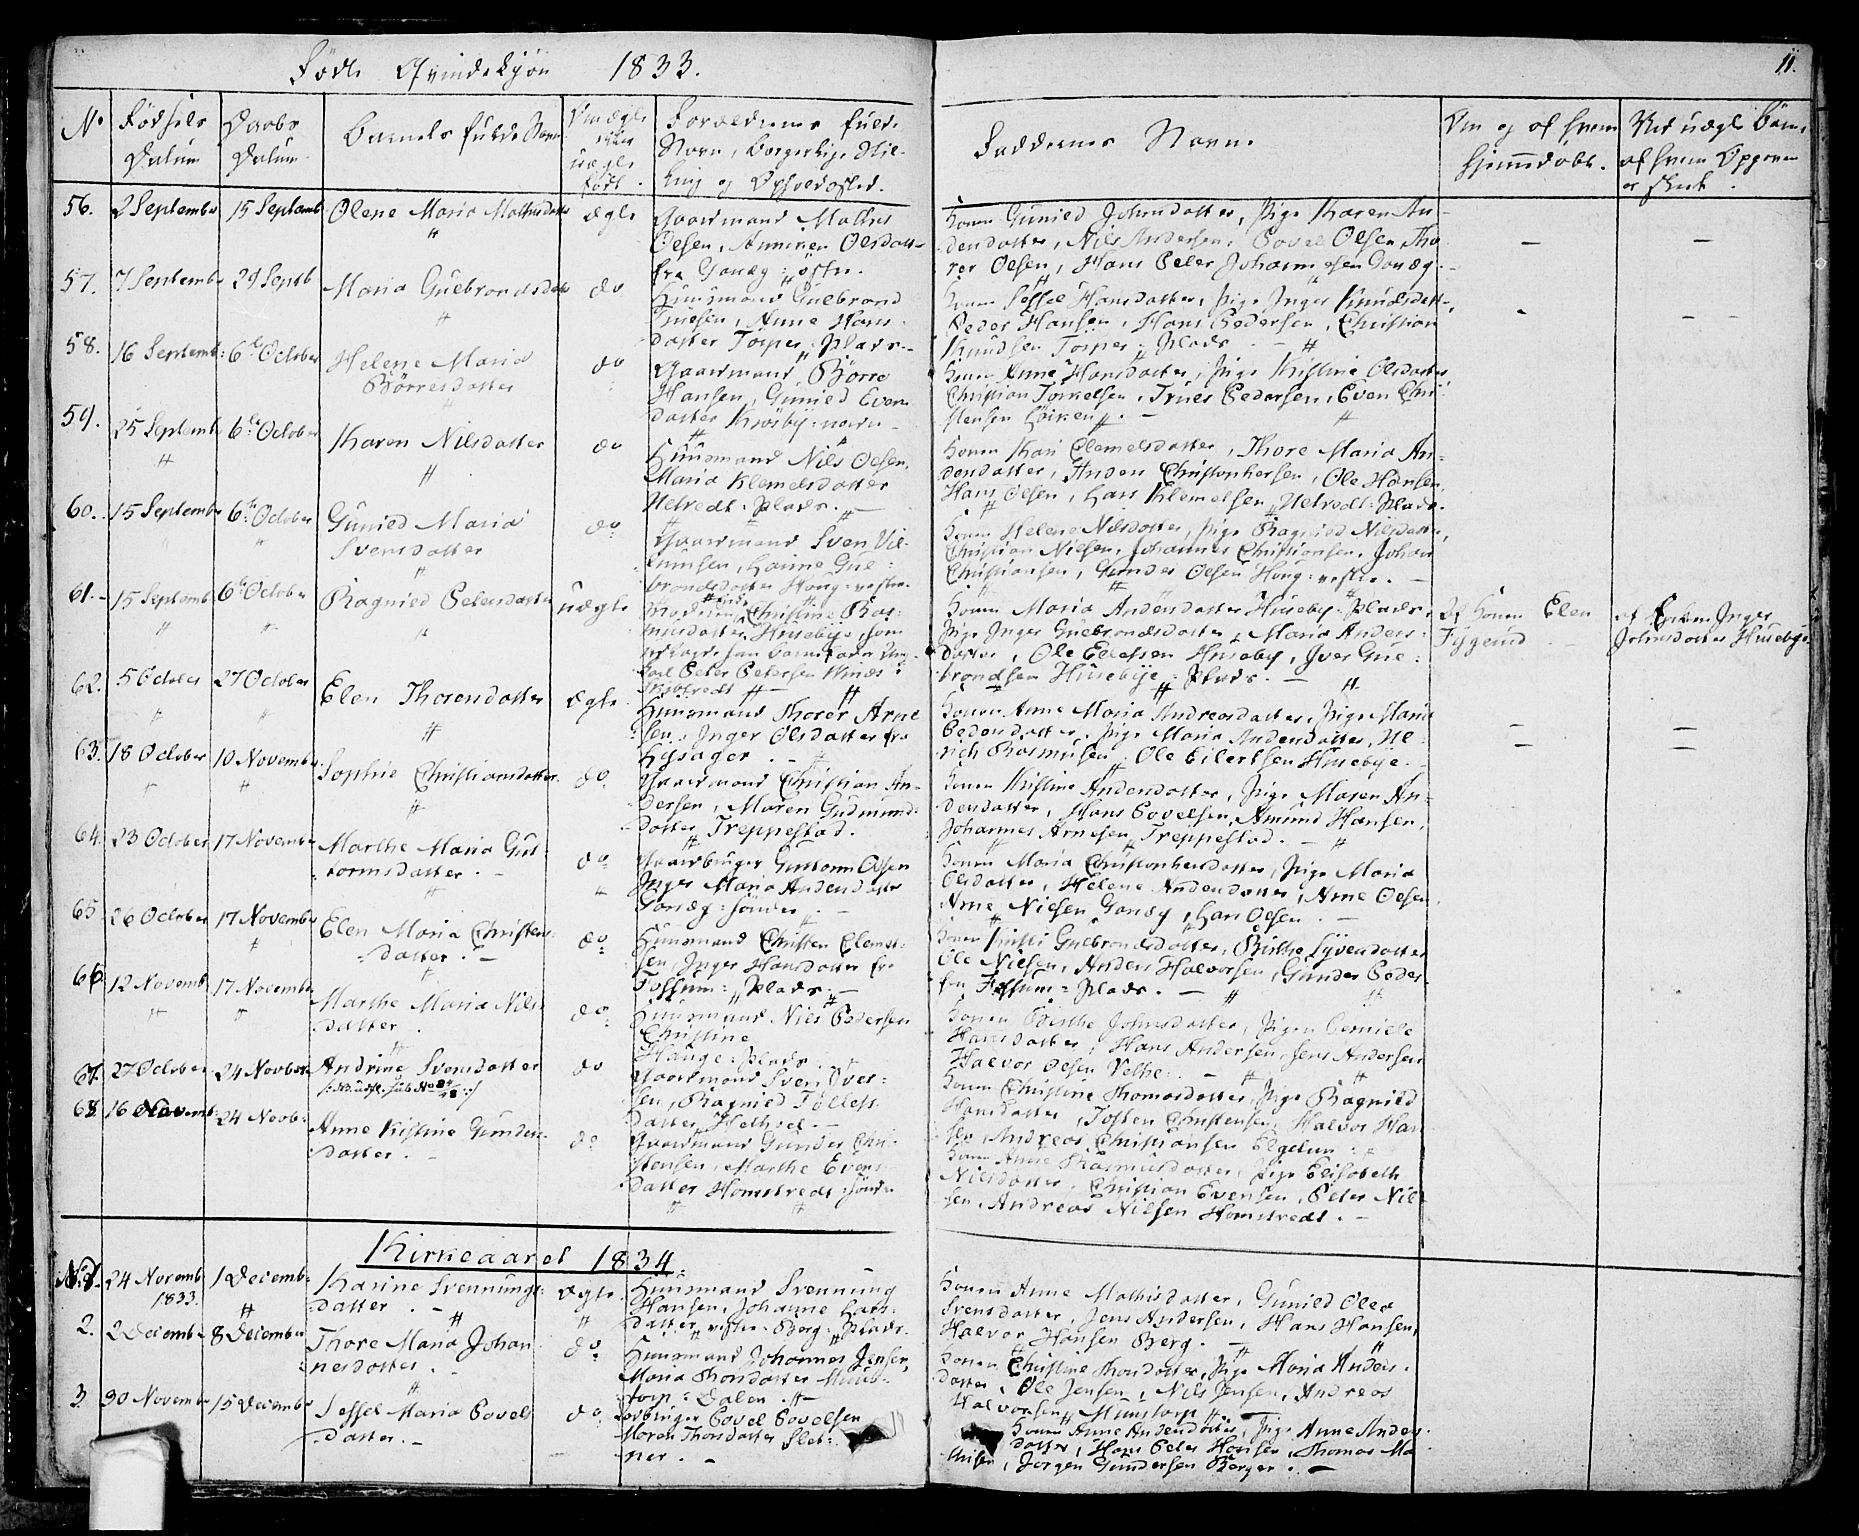 Fødte Qvindekjøn 1833.
11.
No
Fødsels Datum
Daabs Datum
Barnets fulde Navn
Om ægte eller uægte født.
Forældrenes fulde Navn, borgerlige Stilling og Opholdssted.
Faddernes Navne
Om og af hvem hjemmedøbt.
Ved uægte Børn, af hvem Opgaven er skeet.
56.
2 September
15 Septemb
Olene Maria Mathisdatter
ægte
Gaardmand Mathis
Olsen, Anniken Olsdatt
fra Gonæg: østre.
Konen Gunild Johnsdatter, Pige Karen An-
dersdatter, Nils Andersen, Povel Olsen, Tho
rer Olsen, Hans Peter Johannesen Gonæg.
57.
7 Septemb
29 Septb
Maria Gulbrandsdatt
do
Huusmand Gulbrand
Truesen, Anne Hans
datter Torper: Plads.
Konen Sessel Hansdatter, Pige Inger Knudsdatt,
Peder Hansen, Hans Pedersen, Christian
Knudsen Torper: Plads.
58.
16 Septemb:
6te October
Helene Maria
Börresdatter
do
Gaardmand Börre
Hansen, Gunild Even
datter Krosby: nordre
Konen Anne Hansdatter, Pige Kistine Olsdatter
Christian Torkelsen, Trues Pedersen, Even Chri
stensen
59.
25 Septemb
6te October
Karen Nilsdatter
do
Huusmand Nils Olsen,
Maria Klemetsdatter
Helvedt: Plads.
Konen Kari Clemetsdatter, Thore Maria An-
dersdatter, Anders Christophersen, Ole Hansen,
Hans Olsen, Lars Klemetsen, Helvedt: Plads.
60.
15 September
6te October
Gunild Maria
Svensdatter
do
Gaardmand Sven Vil-
lumsen, Hanne Gul-
brandsdatter Houg: vestre.
Konen Helene Nilsdatter, Pige Ragnild Nilsdatter,
Christian Nielsen, Johannes Christiansen, Johan
Christiansen, Gunder Olsen Houg: vestre.
61.
15 Septemb
6te Octobe
Ragnild Petersdatter
uægte
Moderen Christine Ras-
musdatter, Husebye, som
Carl Peter Petersen
Konen Maria Andersdatter Husebye: Plads,
Pige Inger Gulbrandsdatter, Maria Anders-
datter, Ole Edensen Husebye, Iver Gul-
brandsen Husebye: Plads.
Af Konen Elen
af Enken Inger
Johnsdatter Husebye.
62.
5 October
27 October
Elen Thorersdatter
ægte
Huusmand Thorer Arne
sen, Inger Olsdatter fra
Lysager.
Konen Anne Maria Andreasdatter, Pige Maria
Pedersdatter, Pige Maria Andersdatter, Ul-
rich Rasmusen, Ole Eilertsen Husebye.
63.
18 October
10 November
Sophie Christiansdatter
do
Gaardmand Christian An-
dersen, Maren Gudmund-
datter, Treppestad.
Konen Kistine Andersdatter, Pige Maren An-
dersdatter, Hans Povelsen, Amund Hansen,
Johannes Arnesen, Treppestad.
64.
23 October
17 November
Marthe Maria Gut-
tormsdatter.
do
Gaardbruger Guttorm Olsen
Inger Maria Andersdatter
Gonæg: søndre
Konen Maria Christophersdatter, Pige Maria
Olsdatter, Helene Andersdatter, Arne Olsen
Arne Nielsen Gonæg, Lars Olsen.
65
26 October
17 November
Elen Maria Christens
datter.
do
Huusmand Christen Clemet-
sen, Inger Hansdatter fra
Fossum: Plads.
Konen Kirsti Gulbrandsdatter, Birthe Syversdatter
Ole Nielsen, Anders Halvorsen, Gunder Peder
sen Fossum: Plads.
66
12 Novemb
17 November
Marthe Maria Nils-
datter
do
Huusmand Nils Pedersen
Christine
Hauge: Plads
Konen Birthe Johnsdatter, Pigen
Hansdatter, Hans Andersen, Jens Andersen
Halvor Olsen Velhe:
67.
27 October
24 November
Andrine Svensdatter
do
Gaardmand Sven Iver-
sen, Ragnild Tollefs
datter Helhsel.
Konen Christine Thomasdatter, Pige Ragnild
Hansdatter, Tosten Christensen, Halvor Han
sen, Andreas Christiansen
68
16 Novemb:
24 Novb:
Anne Kistine Gunders
datter.
do
Gaardmand Gunder Chri
stensen, Marthe Evens
datter Homstvedt: søndre
Konen Anne Rasmusdatter, Pige Elisabeth
Nilsdatter, Christian Evensen, Peter Nil
sen, Andreas Nilsen Homstvedt.
Kirkeaaret 1834.
No. 1.
24 Novemb
1833.
1 Decemb:
Karine Svennungs-
datter.
ægte
Huusmand Svennung
Hansen, Johanne Lars
datter, vestre: Berg: Plads.
Konen Anne Mathisdatter, Gunild Olea
Svensdatter, Jens Andersen, Hans Hansen,
Halvor Hansen Berg.
2.
2 Decemb
8 December
Thore Maria Johan
nesdatter
do
Huusmand Johannes Jensen,
Maria Thorsdatter
torp: Dalen.
Konen Christine Thorsdatter, Pige Maria Anders-
datter, Ole Jensen, Nils Jensen, Andreas
Halvorsen, Munstorp.
3.
30 Novemb
15 December
Sessel Maria Povels
datter.
do
Povel Povelsen
Maren Thorsdatter Slet-
ner.
Konen Anne Andersdatter, Pige Anne Anders
datter, Hans Peter Hansen, Thomas Ma
thisen, Jørgen Gundersen Borger.